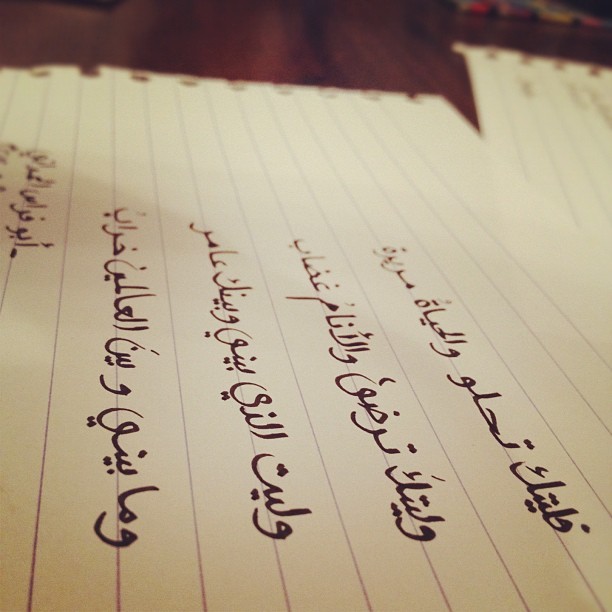 فليتك تحلو والحياة مريرة
وليتك ترضى والأنام غضاب
وليت الذي بيني وبينك عامر
وما بيني وبين العالمين خراب
- أبو فراس الحمداني